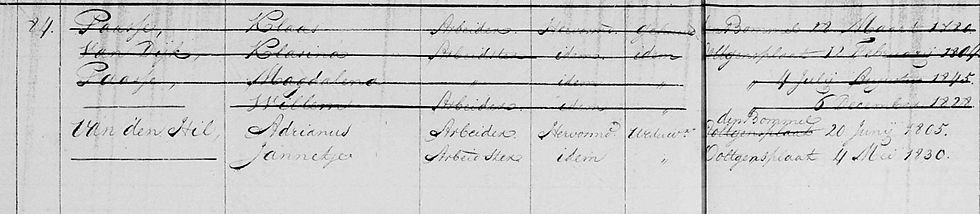 84. Paasse, Klaas Arbeider Hervormd gehuwd den Bommel 12 Maart 1790
Van Dijk, Klasina Arbeidster idem idem Ooltgensplaat 12 Februarij 1804
Paasse, Magdalena " idem " " 4 Julij Augustus 1845
Willem Arbeider idem " " 6 December 1828
den Bommel
Van den Hil, Adrianus Arbeider Hervormd Weduwr Ooltgensplaat 20 Junij 1805.
Jannetje Arbeidster idem " Ooltgensplaat 4 Mei 1830.